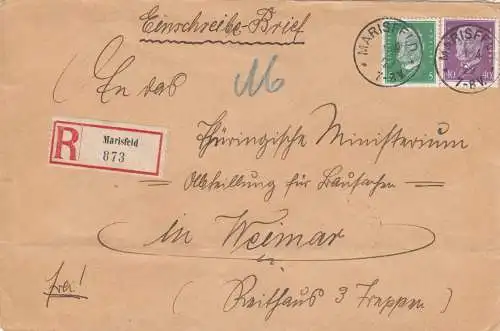 Einschreibe-Brief
MARISFELD
7-8V.
5
MARISFELD
7-8V.
40 40
( An das
R Marisfeld
873
Thüringische Ministerium
— Abteilung für Bausachen —
in Weimar
frei!
( Reithaus 3 Treppen )